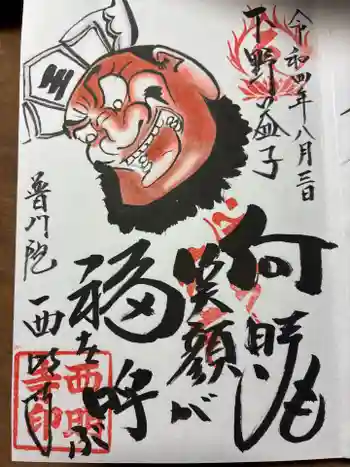 令和四年八月三日
下野益子
何時も
笑顔が
福を呼ぶ
普門院
西明寺
西明寺印
王